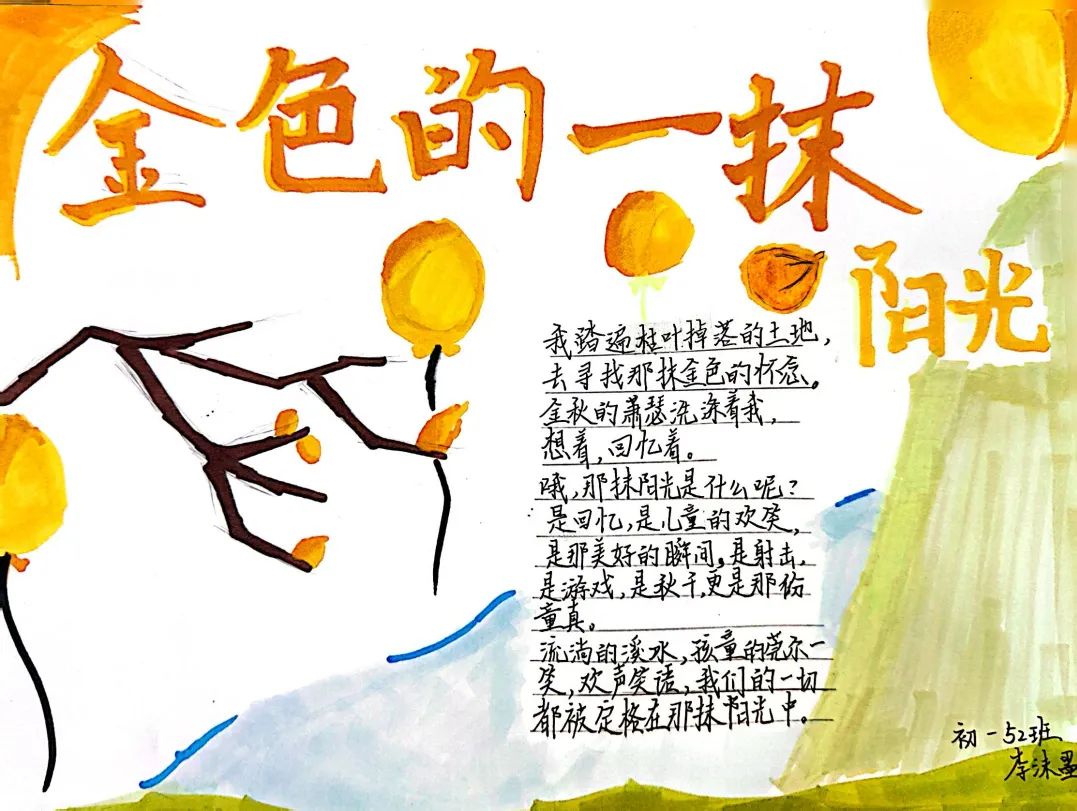 金色的一抹
阳光
我踏遍桂叶掉落的土地，
去寻找那抹金色的怀念。
金秋的萧瑟洗涤着我，
想着，回忆着。
哦，那抹阳光是什么呢？
是回忆，是儿童的欢笑，
是那美好的瞬间。是射击，
是游戏，是秋千，更是那份
童真。
流淌的溪水，孩童的莞尔一
笑，欢声笑语，我们的一切
都被定格在那抹阳光中。
初一52班
李沫墨